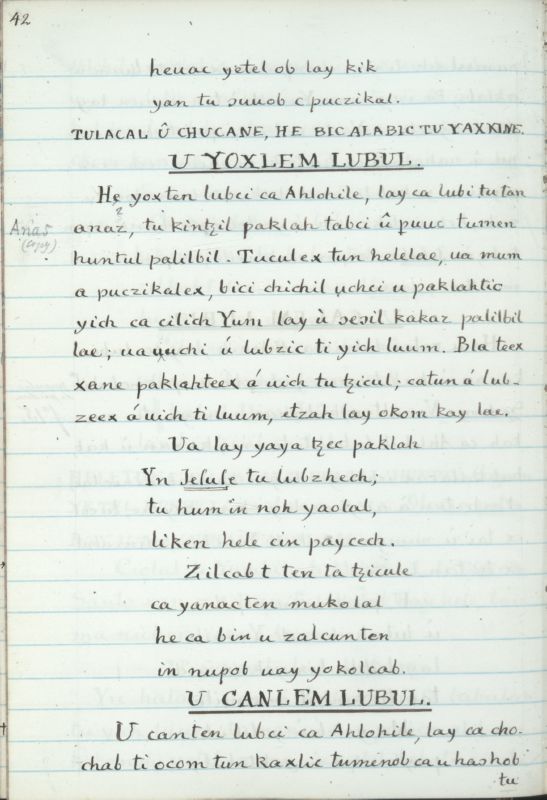 42
heuac yetel ob lay kik
yan tu suuob c puczikal.
TULACAL Û CHUCANE, HE BIC ALABIC TU YAXKINE.
U YOXLEM LUBUL.
He yoxten lubci ca Ahlohile, lay ca lubi tu tan
anaz, tu kintzil paklah tabci û puuc tumen
Anas
(Copy)
huntul palilbil. Tuculex tun helelae, ua mum
a puczikalex, bici chichil uchci u paklahtic
yich ca cilich Yum lay ù sesil kakaz palilbil
lae; ua uuchi ú lubzic ti yich luum. Bla teex
xane paklahteex á uich tu tzicul; catun á lub-
zeex á uich ti luum, etzah lay okom kay lae.
Ua lay yaya tzec paklah
Yn Jesuse tu lubzhech;
tu hum in noh yaolal,
liken hele cin paycech.
Zilcab t ten ta tzicule
ca yanacten mukolal
he ca bin u zalcunten
in nupob uay yokolcab.
U CANLEM LUBUL.
U canten lubci ca Ahlohile, lay ca cho-
chab ti ocom tun kaxlic tumenob ca u hashob
tu